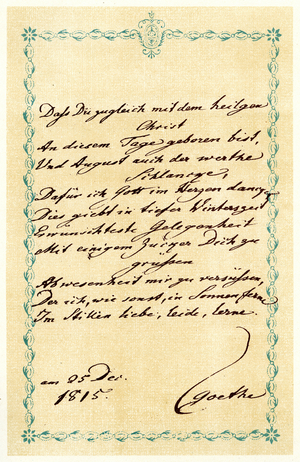 Dass Du zugleich mit dem heilgen
Christ
An diesem Tage geboren bist,
Und August auch der werthe
Schlancke,
Dafür ich Gott im Herzen dancke,
Dies giebt in tiefer Winterszeit
Erwünschteste Gelegenheit
Mit einigem Zucker Dich zu
grüssen
Abwesenheit mir zu versüssen,
Der ich, wie sonst, in Sonnenferne
Im Stillen liebe, leide, lerne.
am 25 Dec.
1815.
Goethe